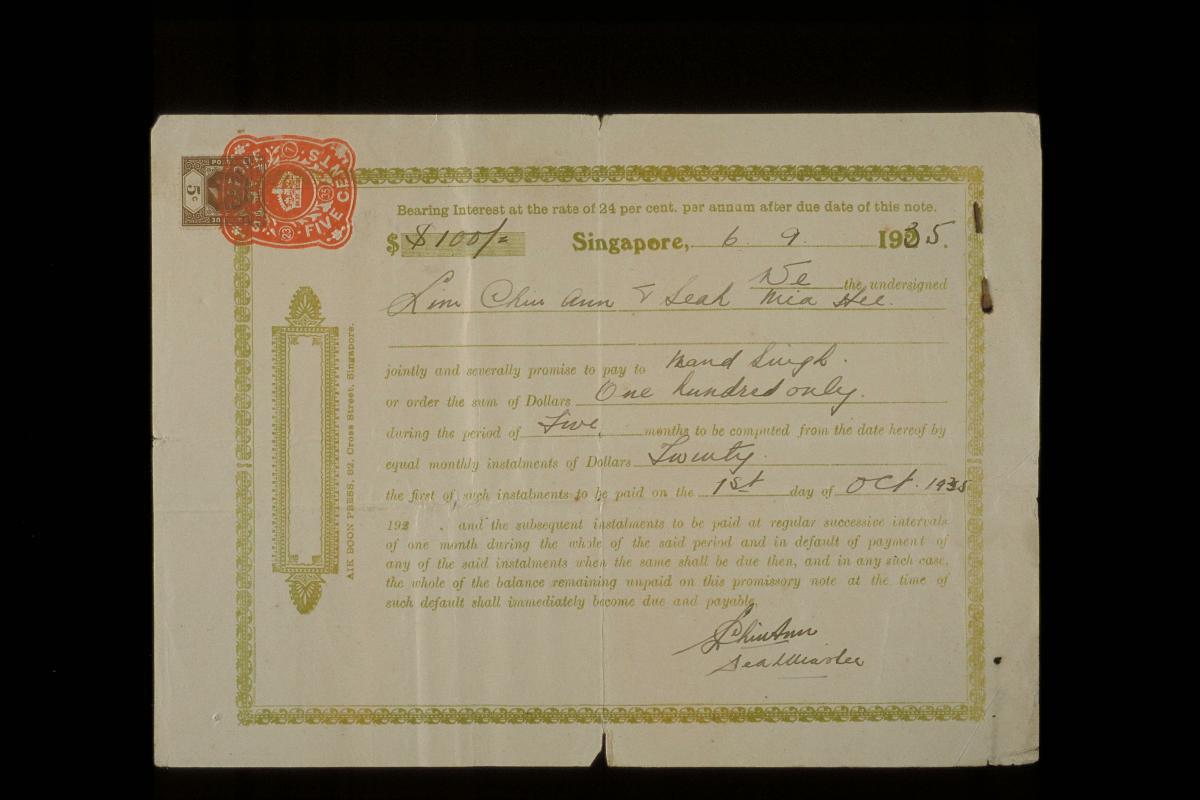 5c
FIVE CENTS
23
35
Bearing Interest at the rate of 24 per cent. per annum after due date of this note.
$ $100/= Singapore, 6 9 1935.
We the undersigned
Lim Chin Ann & Seah Mia Hee.
jointly and severally promise to pay to Nand Singh.
or order the sum of Dollars One hundred only.
during the period of Five months to be computed from the date hereof by
equal monthly instalments of Dollars Twenty.
the first of such instalments to be paid on the 1st day of Oct. 1935
192 . and the subsequent instalments to be paid at regular successive intervals
of one month during the whole of the said period and in default of payment of
any of the said instalments when the same shall be due then, and in any such case,
the whole of the balance remaining unpaid on this promissory note at the time of
such default shall immediately become due and payable.
AIK BOON PRESS, 92, Cross Street, Singapore.
LChinAnn